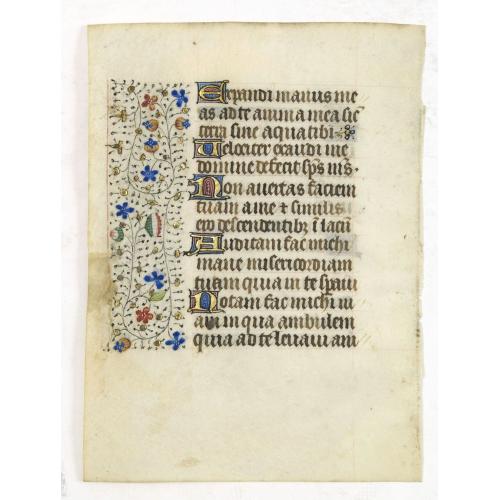 Expandi manus me
as ad te anima mea sic
terra sine aqua tibi
Velociter exaudi me
domine defecit sps ms.
Non avertas faciem
tuam a me & similis
ero descendentibz i lacu
Auditam fac michi
mane misericordiam
tuam quia in te spaui
Notam fac michi ui
am in qua ambulem
quia ad te leuaui am